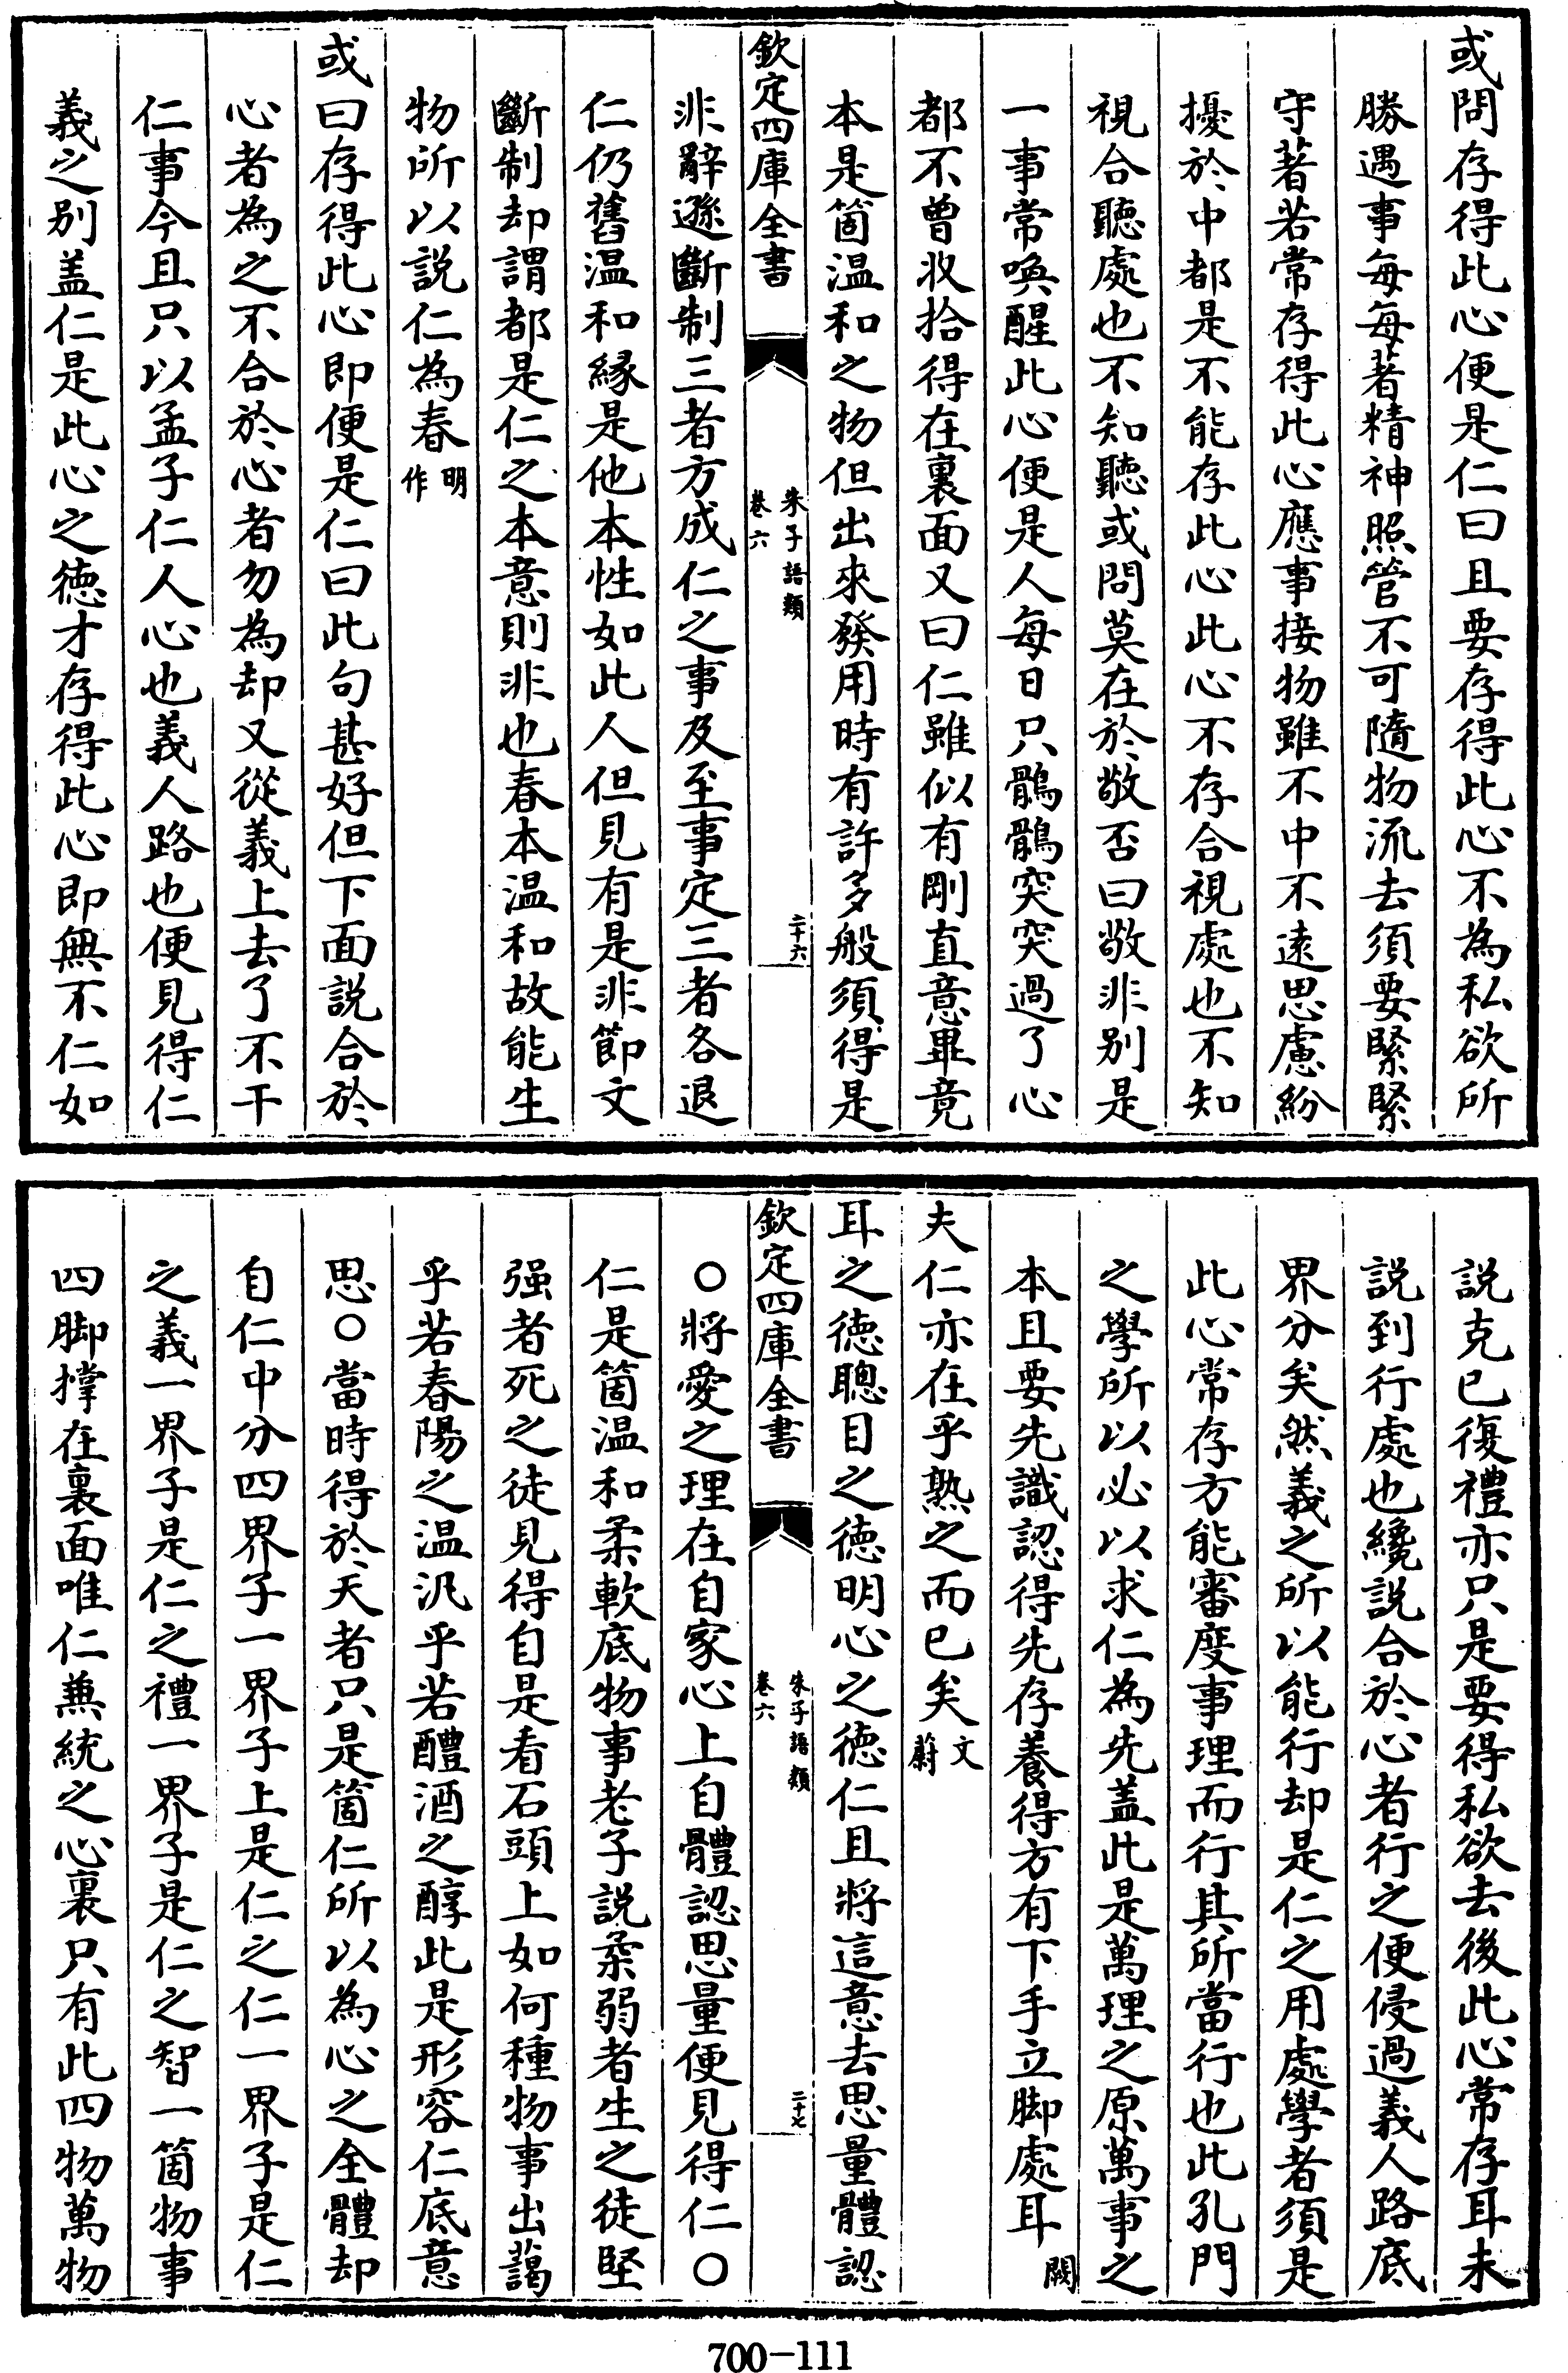 或問存得此心便是仁曰且要存得此心不為私欲所
勝遇事每每著精神照管不可隨物流去須要緊緊
守著若常存得此心應事接物雖不中不逺思慮紛
擾於中都是不能存此心此心不存合視處也不知
視合聽處也不知聽或問莫在於敬否曰敬非别是
一事常喚醒此心便是人每日只鶻鶻突突過了心
都不曾收拾得在裏面又曰仁雖似有剛直意畢竟
本是箇温和之物但出來發用時有許多般須得是
欽定四庫全書
朱子語類
卷六
二十六
非辭遜斷制三者方成仁之事及至事定三者各退
仁仍舊温和緣是他本性如此人但見有是非節文
斷制却謂都是仁之本意則非也春本温和故能生
物所以説仁為春明作
或曰存得此心即便是仁曰此句甚好但下面説合於
心者為之不合於心者勿為却又從義上去了不干
仁事今且只以孟子仁人心也義人路也便見得仁
義之别盖仁是此心之徳才存得此心即無不仁如
説克已復禮亦只是要得私欲去後此心常存耳未
説到行處也纔説合於心者行之便侵過義人路底
界分矣然義之所以能行却是仁之用處學者須是
此心常存方能審度事理而行其所當行也此孔門
之學所以必以求仁為先盖此是萬理之原萬事之
本且要先識認得先存養得方有下手立脚處耳闕
夫仁亦在乎熟之而已矣文蔚
耳之徳聰目之徳明心之徳仁且將這意去思量體認
欽定四庫全書
朱子語類
卷六
二十七
○將愛之理在自家心上自體認思量便見得仁○
仁是箇温和柔軟底物事老子説柔弱者生之徒堅
强者死之徒見得自是看石頭上如何種物事出藹
乎若春陽之温汎乎若醴酒之醇此是形容仁底意
思○當時得於天者只是箇仁所以為心之全體却
自仁中分四界子一界子上是仁之仁一界子是仁
之義一界子是仁之禮一界子是仁之智一箇物事
四脚撑在裏面唯仁兼統之心裏只有此四物萬物
700-111